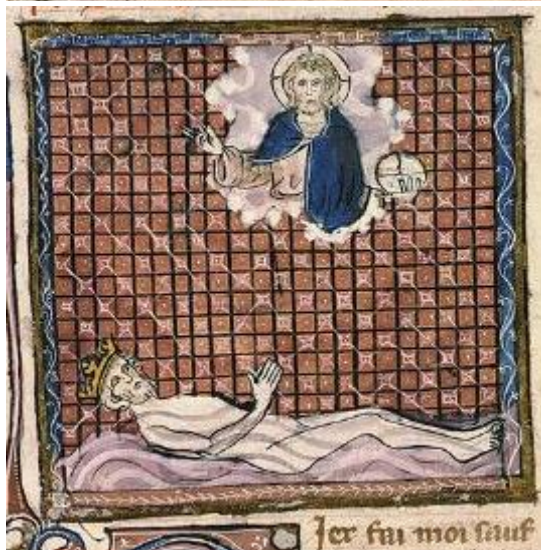 Iex fai moi sauf